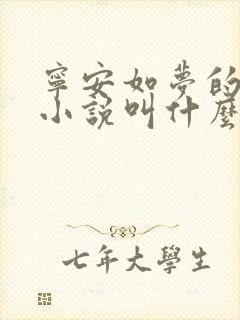 寧安如夢的
小說叫什麼
七年大學生